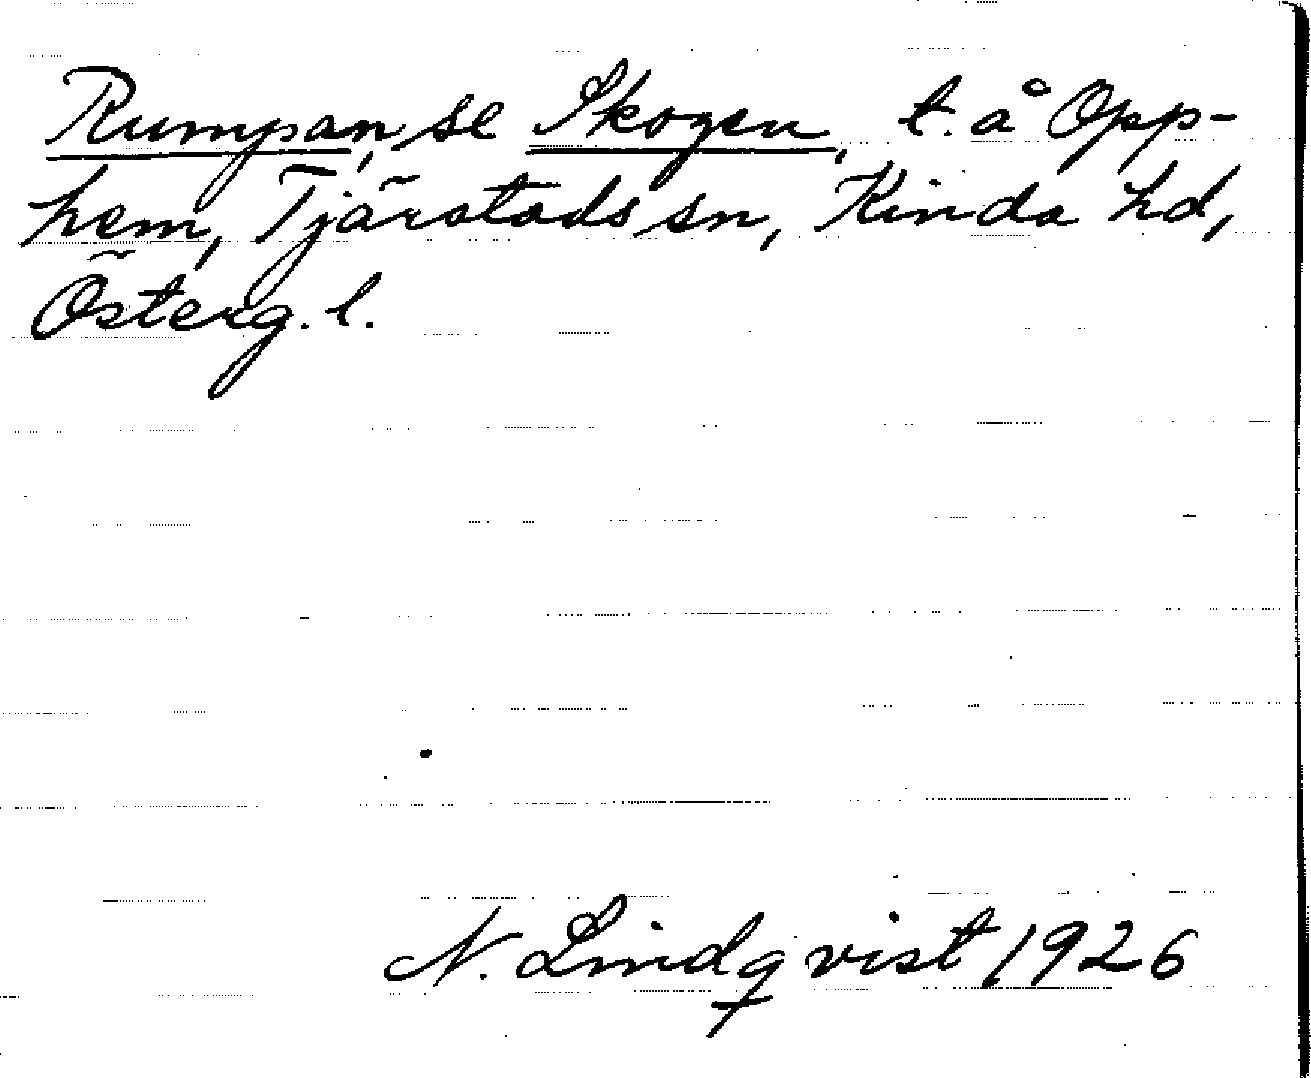 Rumpan, se Skogen, t. å Opp-
hem, Tjärstads sn, Kinda hd,
Österg. l.
N. Lindqvist 1926